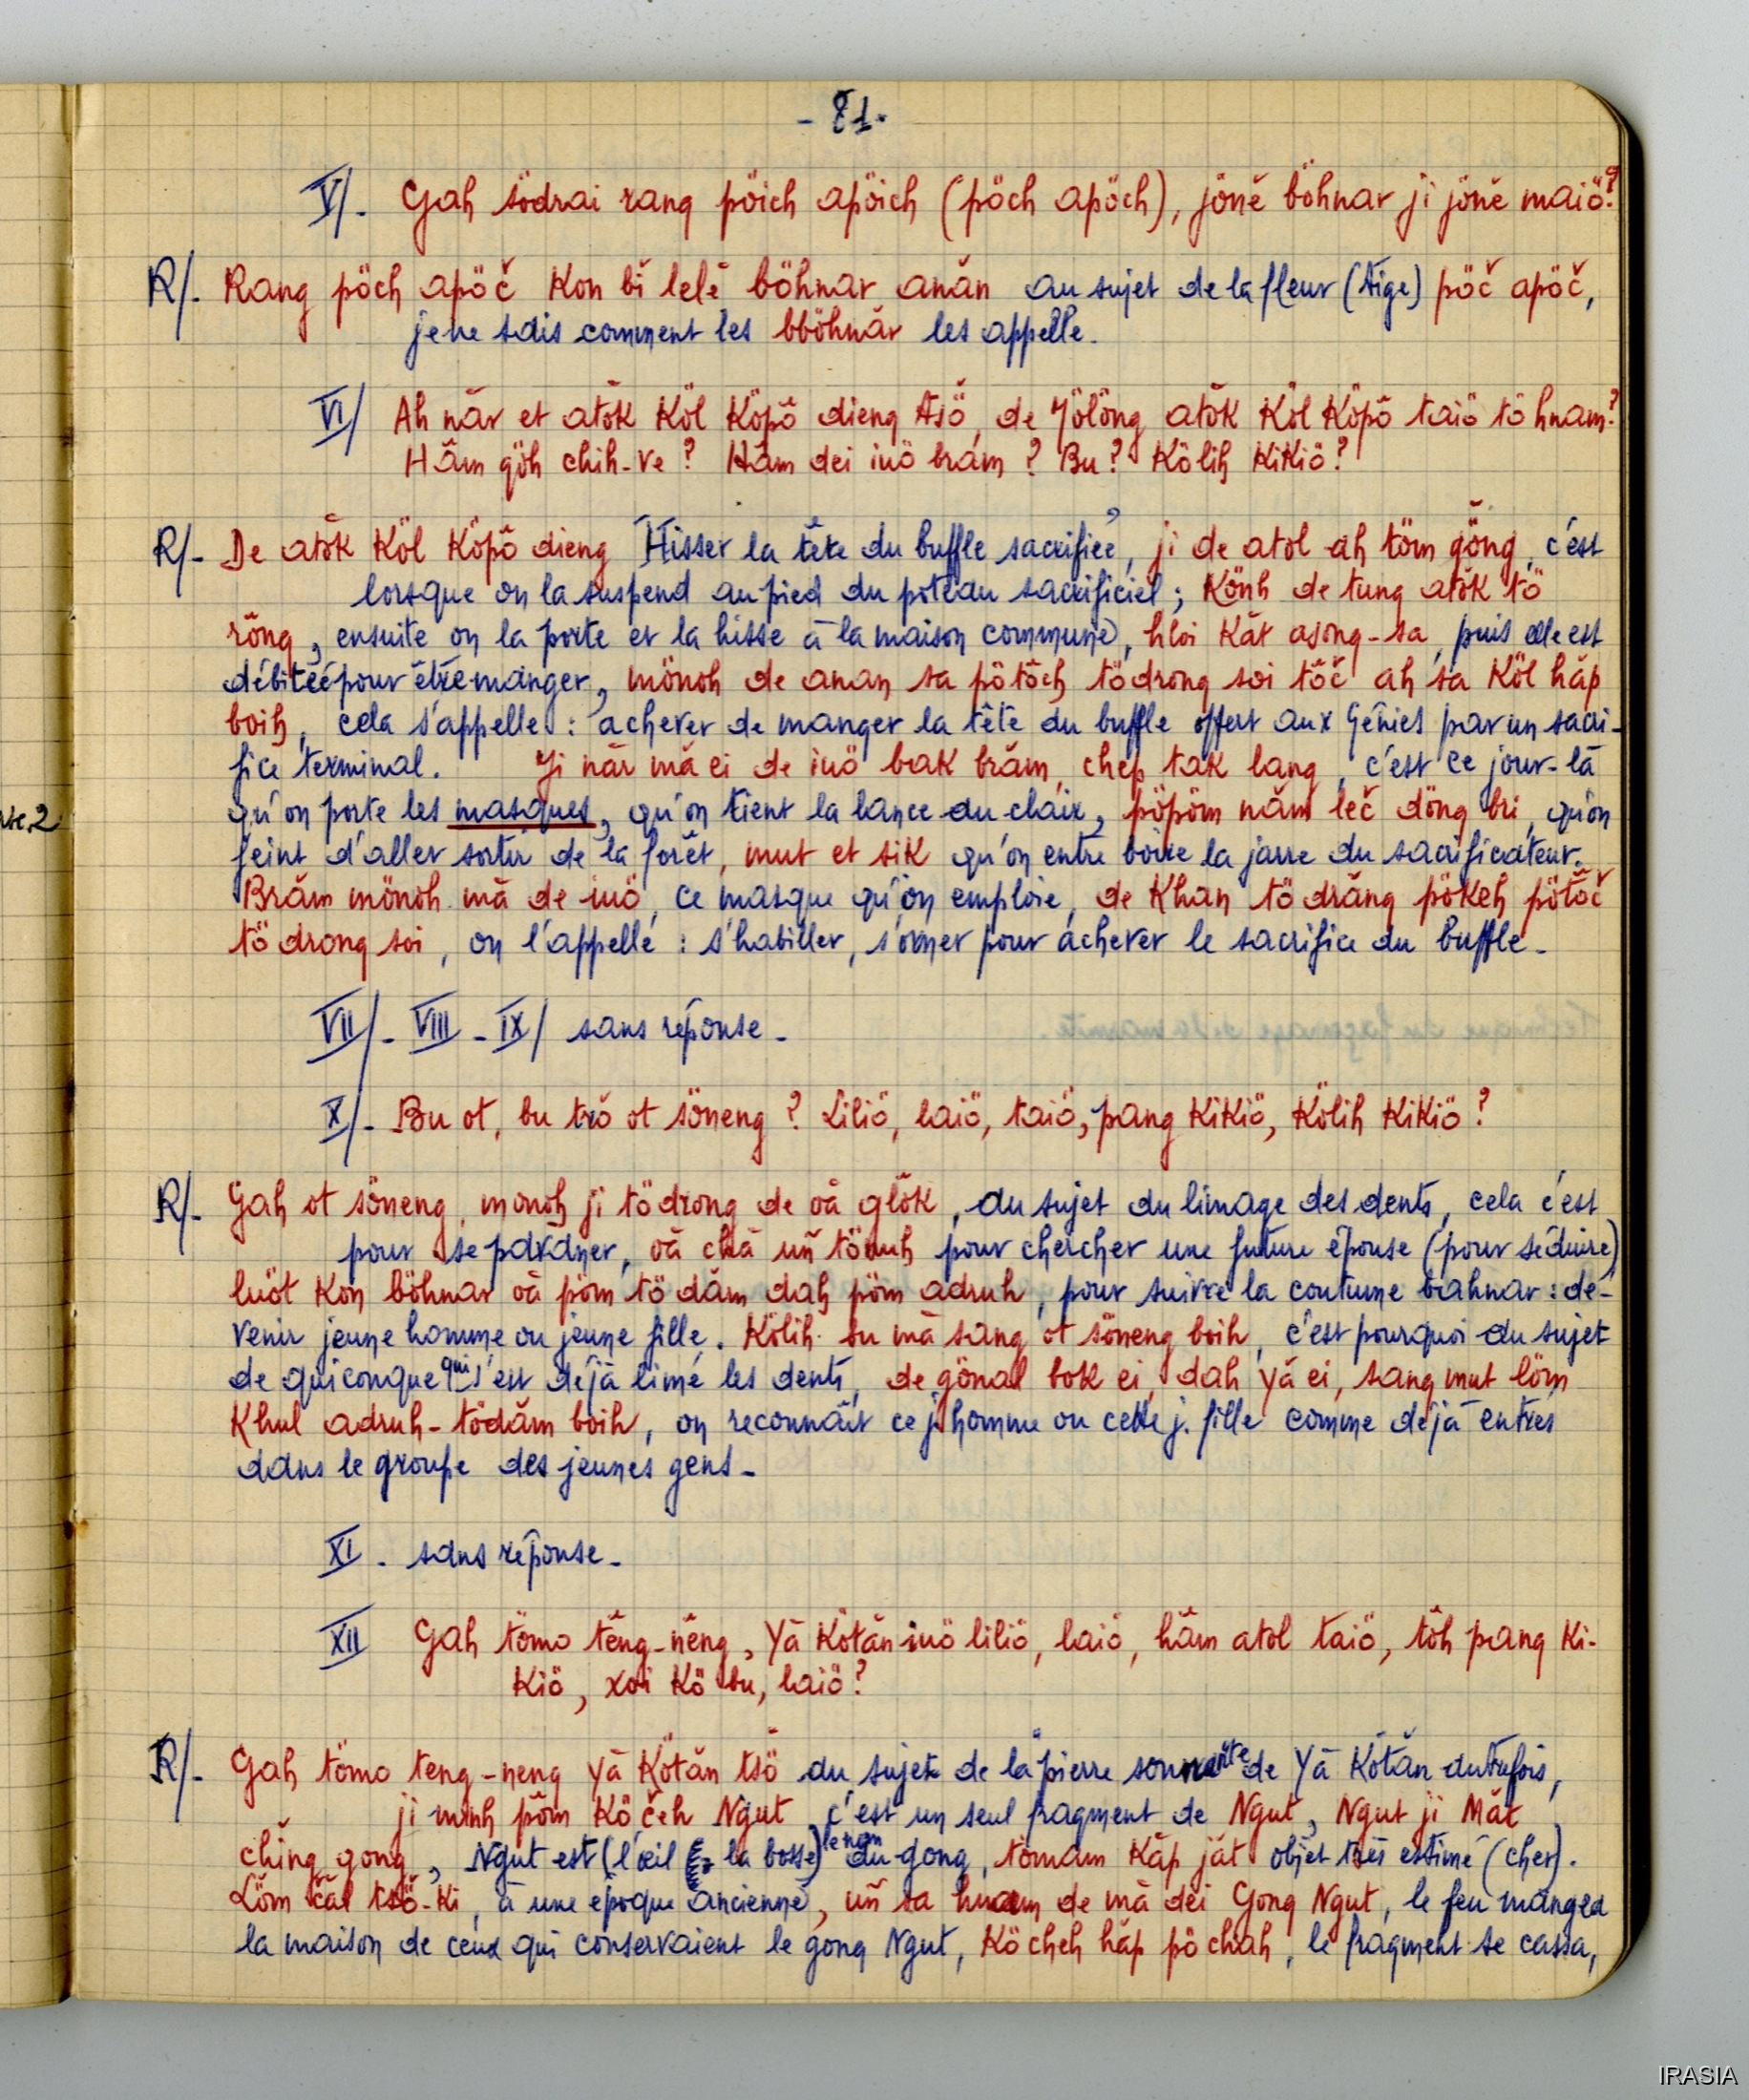 - 81.
V/. Gah södrai rang pöich apöich (pöch apöch), jönĕ böhnar ji jönĕ maiö?
R/. Rang pöch apöč kon bĭ lelĕ böhnar anăn au sujet de la fleur (tige) pöč apöč,
je ne sais comment les bböhnăr les appelle.
VI/ Ah năr et atŏk köl köpô dieng tsŏ, de jölŏng atŏk köl köpô taiö tö hnam?
Hăm gŏh chih-ve? Hăm dei iuö brăm? Bu? Kölih kikiö?
R/- De atŏk köl köpô dieng Hisser la tête du buffle sacrifiée, ji de atol ah töm gŏng, c'est
lorsque on la suspend au pied du poteau sacrificiel; könh de tung atŏk tö
rông, ensuite on la porte et la hisse à la maison commune, hloi kăt asong-sa, puis elle est
débitée pour être manger, mönoh de anan sa pötŏch tödrong soi tŏč ah sa köl hăp
boih, cela s'appelle: achever de manger la tête du buffle offert aux Génies par un sacri-
fice terminal. Ji năr mă ei de iuö bak brăm, chep tak lang, c'est ce jour-là
rse.2
qu'on porte les masques, qu'on tient la lance du claix, pöpöm năm leč dông bri, qu'on
feint d'aller sortir de la forêt, mut et sik qu'on entre boire la jarre du sacrificateur.
Brăm mönoh mă de iuö, ce masque qu'on emploie, de khan tö drăng pökeh pötŏč
tö drong soi, on l'appelle: s'habiller, s'orner pour achever le sacrifice du buffle-
VII/- VIII - IX/ sans réponse-
X/- Bu ot, bu trŏ ot söneng? Liliö, laiö, taiö, pang kikiö, kölih kikiö?
R/- Gah ot söneng, monoh ji tödrong de oă glŏk, au sujet du limage des dents, cela c'est
pour se pavaner, oă chă uñ tömuh pour chercher une future épouse (pour séduire)
luöt kon böhnar oă pöm tö dăm dah pöm adruh, pour suivre la coutume bahnar: de-
venir jeune homme ou jeune fille. Kölih bu mă sang ot söneng boih, c'est pourquoi au sujet
de quiconque qui s'est déjà limé les dents, de gönal bok ei, dah yă ei, sang mut löm
khul adruh-tödăm boih, on reconnaît ce j. homme ou cette j. fille comme déjà entrés
dans le groupe des jeunes gens-
XI - sans réponse-
XII Gah tömo tĕng-nĕng, Yă Kötăn iuö liliö, laiö, hăm atol taiö, tŏh pang ki-
kiö, xoi kö bu, laiö?
R/- Gah tömo teng-neng yă Kötăn tsŏ au sujet de la pierre sonnante de Yă Kötăn autrefois,
ji minh pŏm kö čeh Ngut c'est un seul fragment de Ngut, Ngut ji Măt
chĭng gong, Ngut est (l'œil la bosse) le nom du gong, tömam kăp jăt objet très estimé (cher).
Löm čăl tsŏ-ki, à une époque ancienne, uñ sa hnam de mă dei Gong Ngut, le feu mangea
la maison de ceux qui conservaient le gong Ngut, kö cheh hăp pö chah, le fragment se cassa,
IRASIA